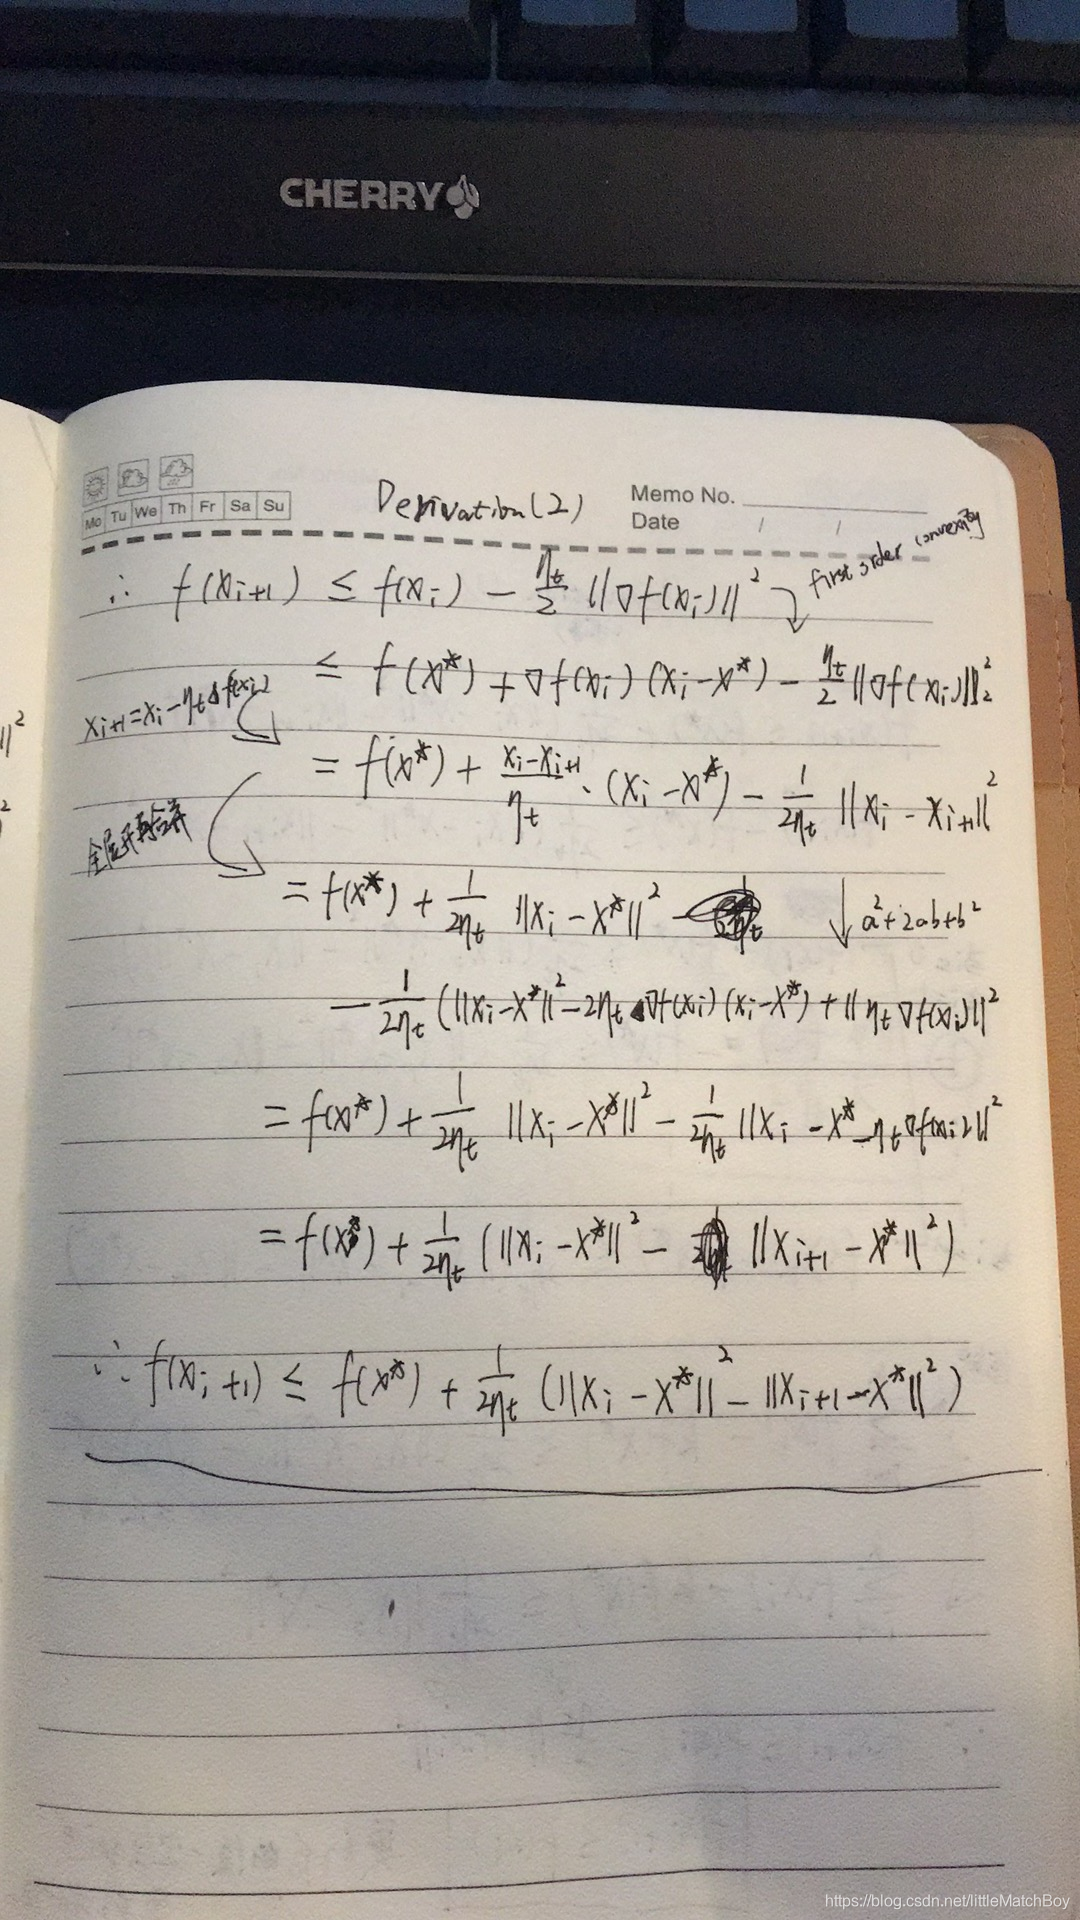 CHERRY
Mo Tu We Th Fr Sa Su
Derivation(2)
Memo No.
Date / /
first order convexity
∴ f(x_{i+1}) ≤ f(x_i) - η_t/2 ||∇f(x_i)||²
≤ f(x*) + ∇f(x_i)(x_i-x*) - η_t/2 ||∇f(x_i)||₂²
x_{i+1}=x_i-η_t∆f(x_i)
= f(x*) + (x_i-x_{i+1})/η_t · (x_i-x*) - 1/2η_t ||x_i - x_{i+1}||²
全展开再合并
= f(x*) + 1/2η_t ||x_i - x*||² -
↓ a²+2ab+b²
- 1/2η_t (||x_i-x*||² - 2η_t ∇f(x_i)(x_i-x*) + ||η_t∇f(x_i)||²
= f(x*) + 1/2η_t ||x_i-x*||² - 1/2η_t ||x_i - x* - η_t∇f(x_i)||²
= f(x*) + 1/2η_t (||x_i-x*||² - ||x_{i+1} - x*||²)
∴ f(x_{i+1}) ≤ f(x*) + 1/2η_t (||x_i - x*||² - ||x_{i+1} - x*||²)
https://blog.csdn.net/littleMatchBoy